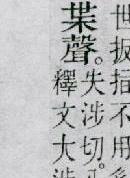 世扱插不用
枼聲。失涉切。
釋文大涉